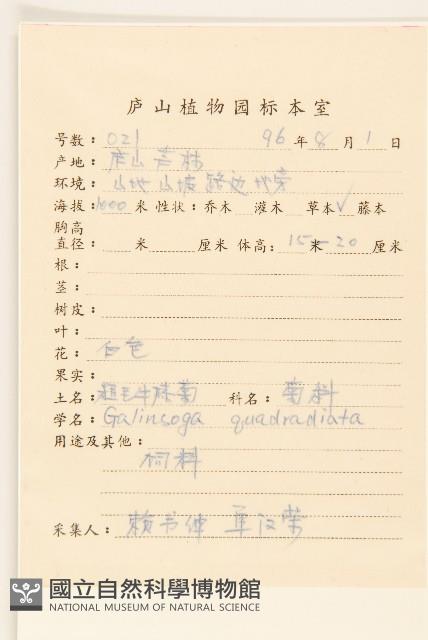 庐山植物园标本室
号数：021 96年8月1日
产地：庐山芦林
环境：山地山坡路边地旁
海拔：1000米 性状：乔木 灌木 草本√ 藤本
胸高
直径： 米 厘米 体高：15米20厘米
根：
茎：
树皮：
叶：
花：白色
果实：
土名：粗毛牛膝菊 科名：菊科
学名：Galinsoga quadradiata
用途及其他：
饲料
采集人：赖书绅 单汉荣
國立自然科學博物館
NATIONAL MUSEUM OF NATURAL SCIENCE